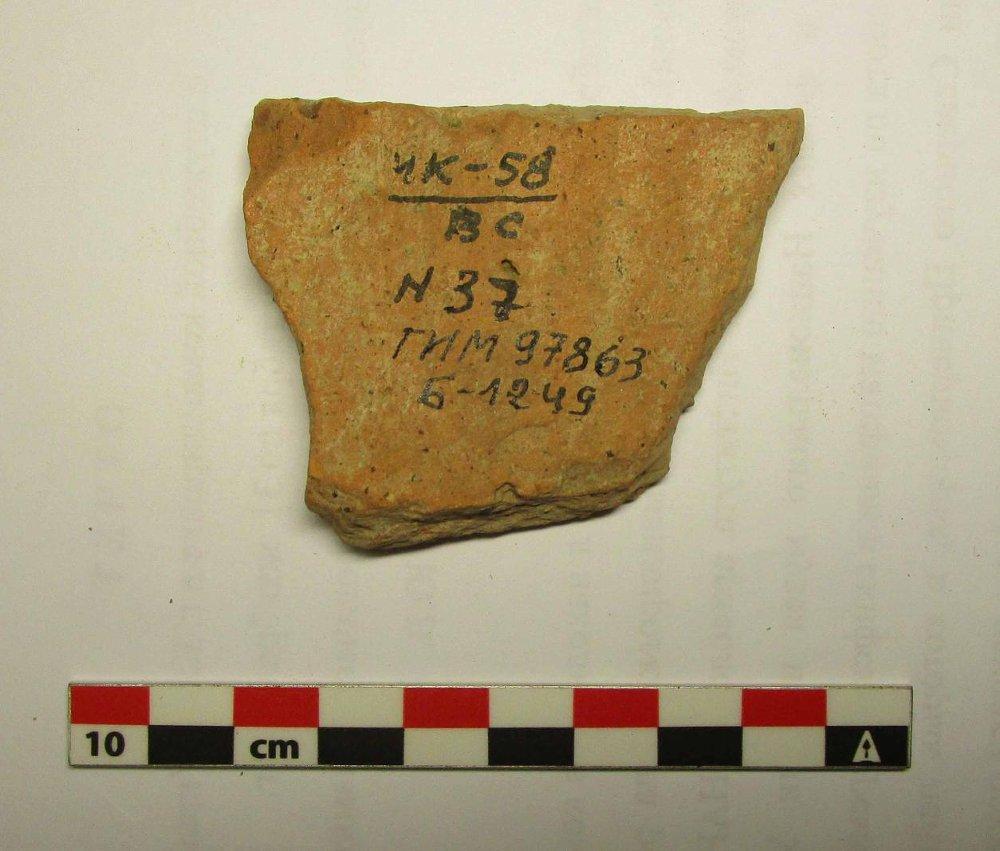 ЧК-58
ВС
N 37
ГИМ 97863
Б-1249
10 cm